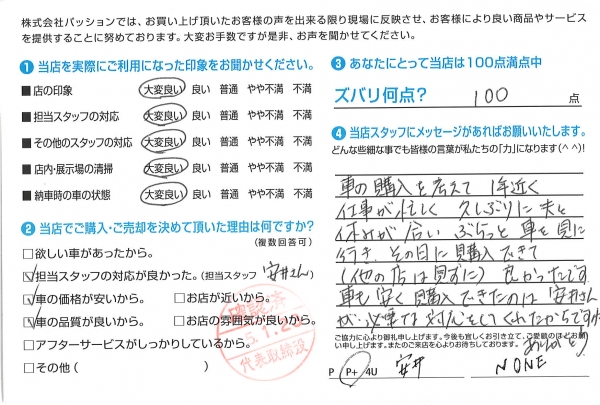 株式会社パッションでは、お買い上げ頂いたお客様の声を出来る限り現場に反映させ、お客様により良い商品やサービス
を提供することに努めております。大変お手数ですが是非、お声を聞かせてください。
1 当店を実際にご利用になった印象をお聞かせください。
■店の印象 大変良い 良い 普通 やや不満 不満
■担当スタッフの対応 大変良い 良い 普通 やや不満 不満
■その他のスタッフの対応 大変良い 良い 普通 やや不満 不満
■店内・展示場の清掃 大変良い 良い 普通 やや不満 不満
■納車時の車の状態 大変良い 良い 普通 やや不満 不満
2 当店でご購入・ご売却を決めて頂いた理由は何ですか?
(複数回答可)
□欲しい車があったから。
☑担当スタッフの対応が良かった。(担当スタッフ 安井さん)
☑車の価格が安いから。 □お店が近いから。
☑車の品質が良いから。 □お店の雰囲気が良いから
□アフターサービスがしっかりしているから。
□その他 ( )
確認済
代表取締役
3 あなたにとって当店は100点満点中
ズバリ何点? 100 点
4 当店スタッフにメッセージがあればお願いいたします。
どんな些細な事でも皆様の言葉が私たちの「力」になります(^^)!
車の購入を考えて 1年近く
仕事が忙しく 久しぶりに夫と
休みが合い ぶらっと 車を見に
行き その日に購入できて
(他の店は見ずに) 良かったです
車も安く購入できたのは 安井さん
が 必車な対応をしてくれたからですね
ありがとう
ご協力に心より御礼申し上げます。今後も宜しくお引き立て、ご愛顧のほどお願
い申し上げます。またのご来店を心よりお待ちしております。
P P+ 4U 安井 NONE